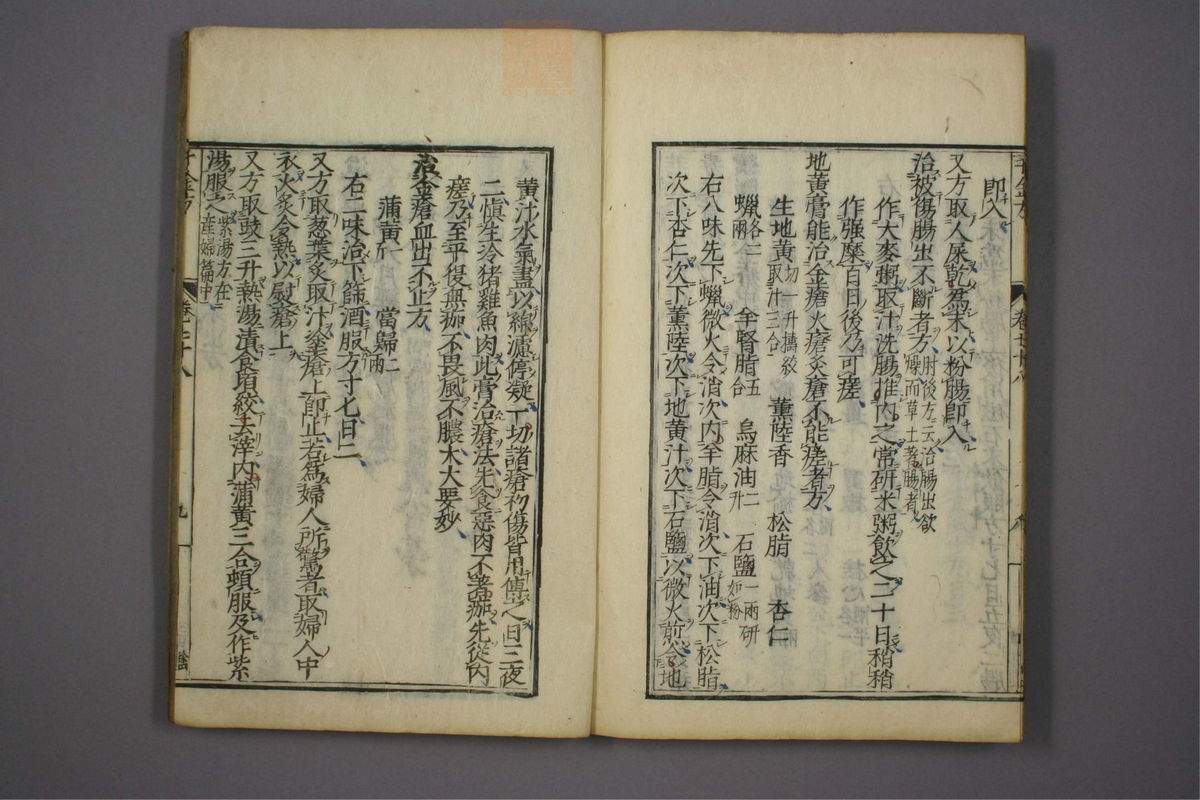 即入
又方取人屎乾爲末以粉腸即入
治被傷腸出不斷者方肘後方云治腸出欲
燥而草土著腸者
作大麥粥取汁洗腸推內之常研米粥飲之二十日稍稍
作强糜百日後乃可瘥
地黃膏能治金瘡火瘡灸瘡不能瘥者方
生地黃切一升擣絞
取汁三合
薰陸香 松脂 杏仁
蠟各二
兩
羊腎脂五
合
烏麻油二
升
石鹽一兩研
如粉
右八味先下蠟微火令消次內羊脂令消次下油次下松脂
次下杏仁次下薰陸次下地黃汁次下石鹽以微火煎令地
黃汁水氣盡以綿濾停凝一切諸瘡初傷皆用傅之日三夜
二慎生冷猪雞魚肉此膏治瘡法先食惡肉不著痂先從內
瘥乃至平復無痂不畏風不膿大大要妙
治金瘡血出不止方
蒲黃一斤 當歸二
兩
右二味治下篩酒服方寸匕日二
又方取葱葉炙取汁塗瘡上即止若爲婦人所驚者取婦人中
衣火炙令熱以熨瘡上
又方取豉三升熱湯漬食頃絞去滓內蒲黃三合頓服及作紫
湯服之紫湯方在
産婦篇中
千金方 卷二十八 九